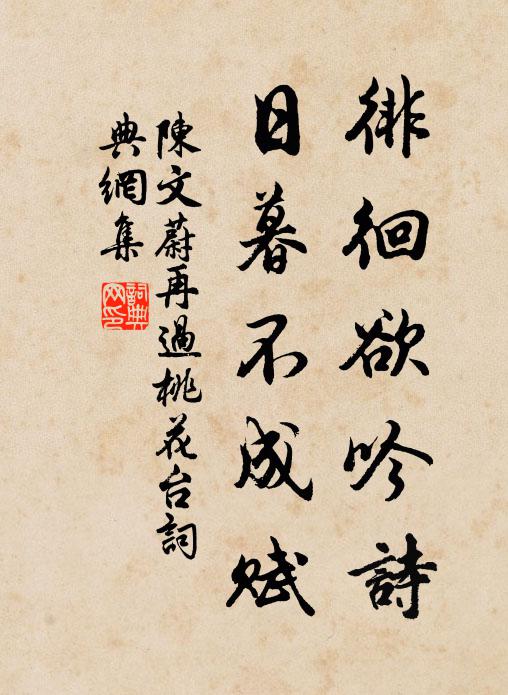 徘徊欲吟詩
日暮不成賦
陳文蔚再過桃花台詞
典網集
詞典网印